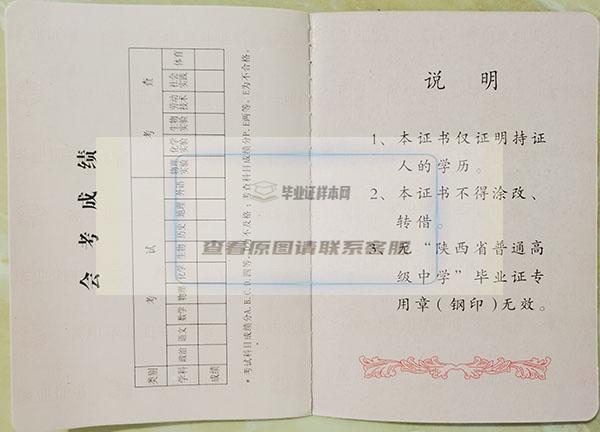 会考成绩
类别 考试 考查
学科 政治 语文 数学 物理 化学 生物 历史 地理 外语 物理实验 化学实验 生物实验 劳动技术 社会实践 体育
成绩
*考试科目成绩分A、B、C、D四等,
不及格;考查科目成绩分P、E两等,E为不合格。
说明
1、本证书仅证明持证
人的学历。
2、本证书不得涂改、
转借。
3、无“陕西省普通高
级中学”毕业证专
用章(钢印)无效。
毕业证样本网
查看原图请联系客服